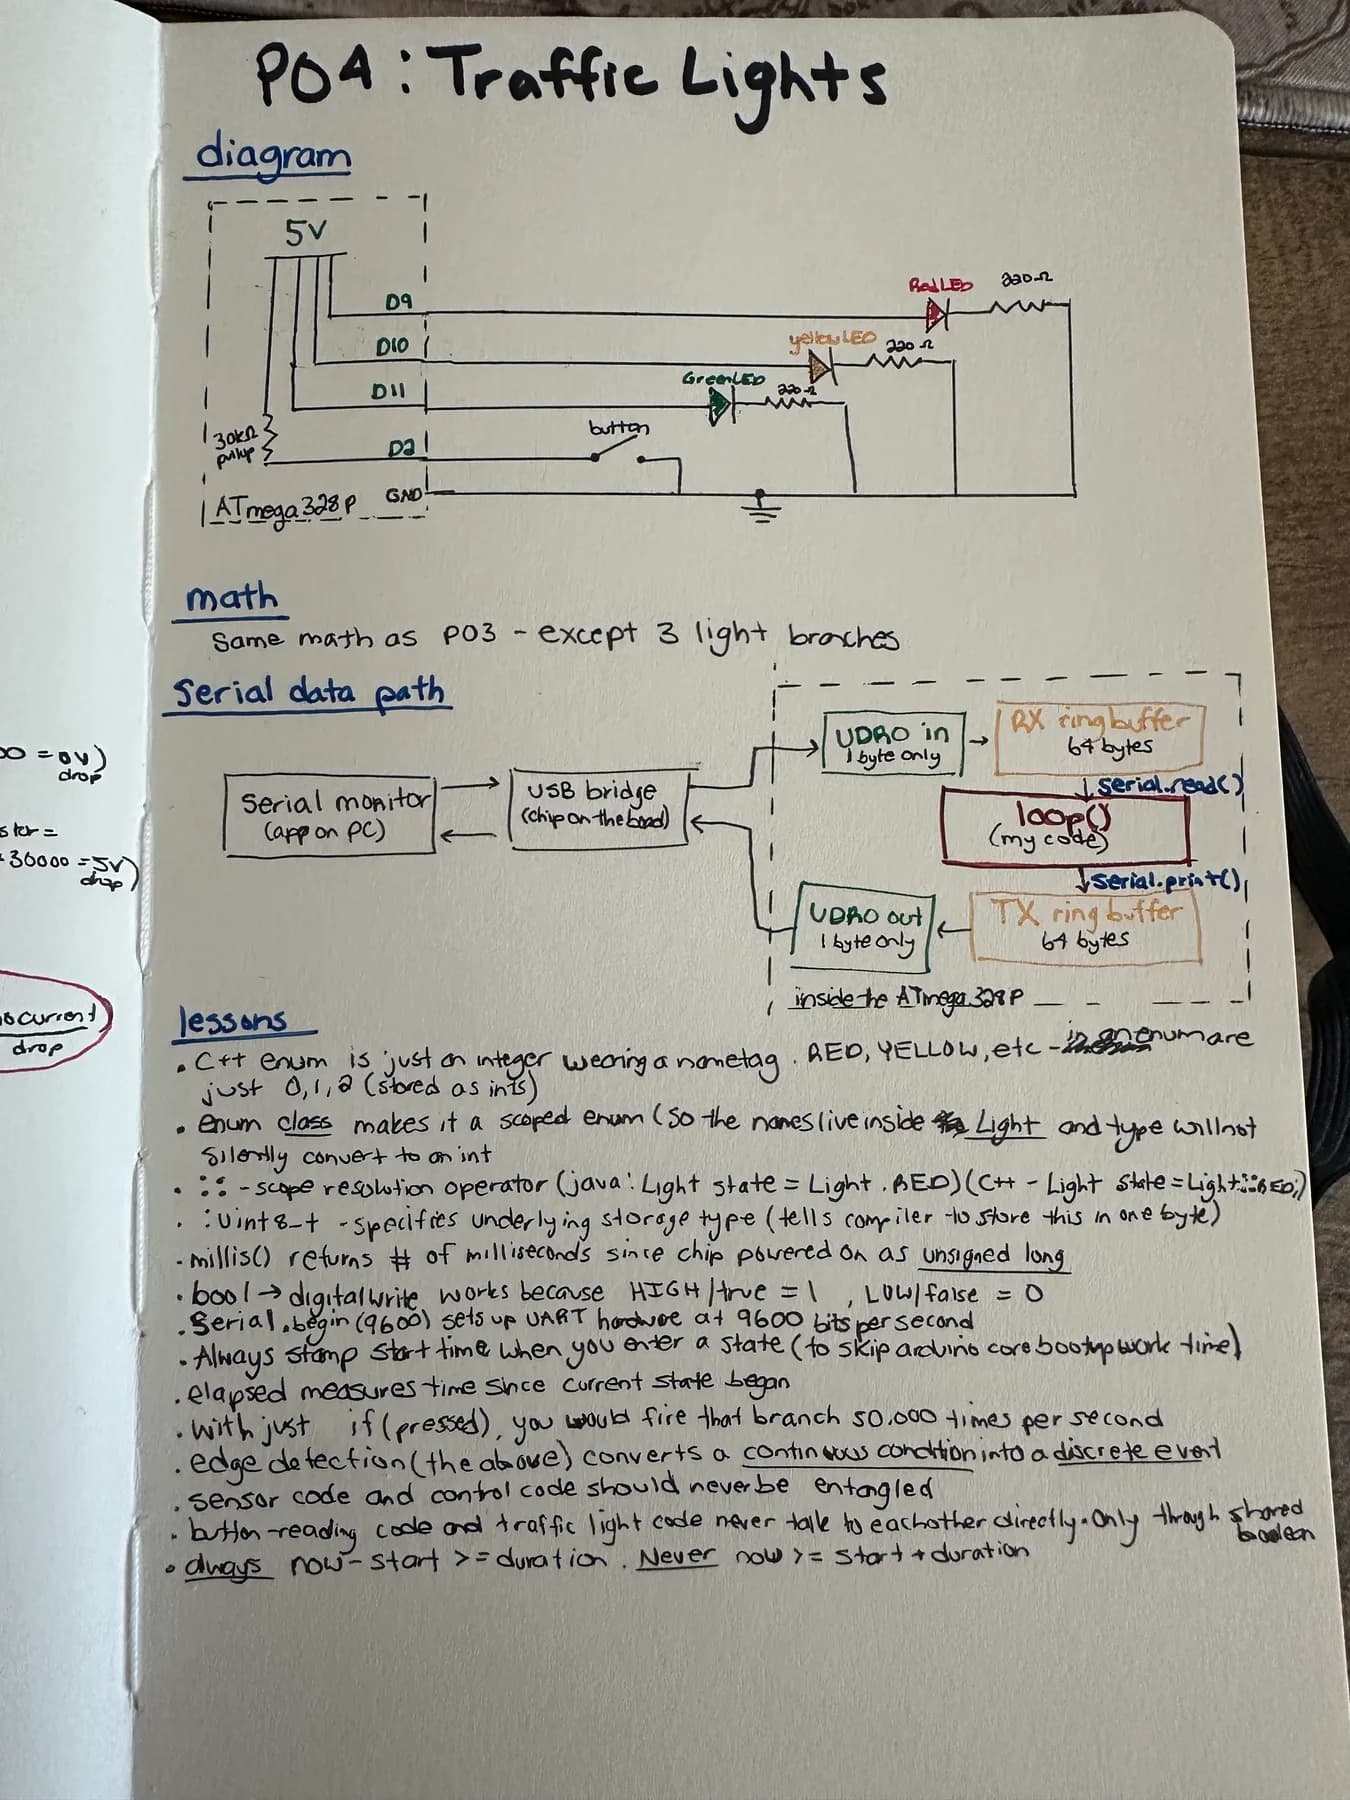 P04: Traffic Lights
diagram
5V
D9
D10
D11
D2
GND
30kΩ
pullup
ATmega328P
Red LED
220Ω
yellow LED
220Ω
Green LED
220Ω
button
math
Same math as P03 - except 3 light branches
Serial data path
Serial monitor
(app on PC)
USB bridge
(chip on the board)
UDR0 in
1 byte only
RX ring buffer
64 bytes
Serial.read()
loop()
(my code)
Serial.print()
TX ring buffer
64 bytes
UDR0 out
1 byte only
inside the ATmega328P
lessons
. C++ enum is just an integer wearing a nametag. RED, YELLOW, etc - in enum are
just 0,1,2 (stored as ints)
. enum class makes it a scoped enum (So the names live inside Light and type will not
silently convert to an int
. :: - scope resolution operator (java: Light state = Light.RED) (C++ - Light state = Light::RED;)
. :uint8_t - specifies underlying storage type (tells compiler to store this in one byte)
. millis() returns # of milliseconds since chip powered on as unsigned long
. bool → digitalwrite works because HIGH/true = 1, LOW/false = 0
. Serial.begin(9600) sets up UART hardware at 9600 bits per second
. Always stamp start time when you enter a state (to skip arduino core bootup work time)
. elapsed measures time since current state began
. with just if(pressed), you would fire that branch 50,000 times per second
. edge detection (the above) converts a continuous condition into a discrete event
. sensor code and control code should never be entangled
. button-reading code and traffic light code never talk to eachother directly. Only through shared
boolean
. always now - start >= duration. Never now >= start + duration
00 = 0V)
drop
30000 = 5V)
drop
current)
drop